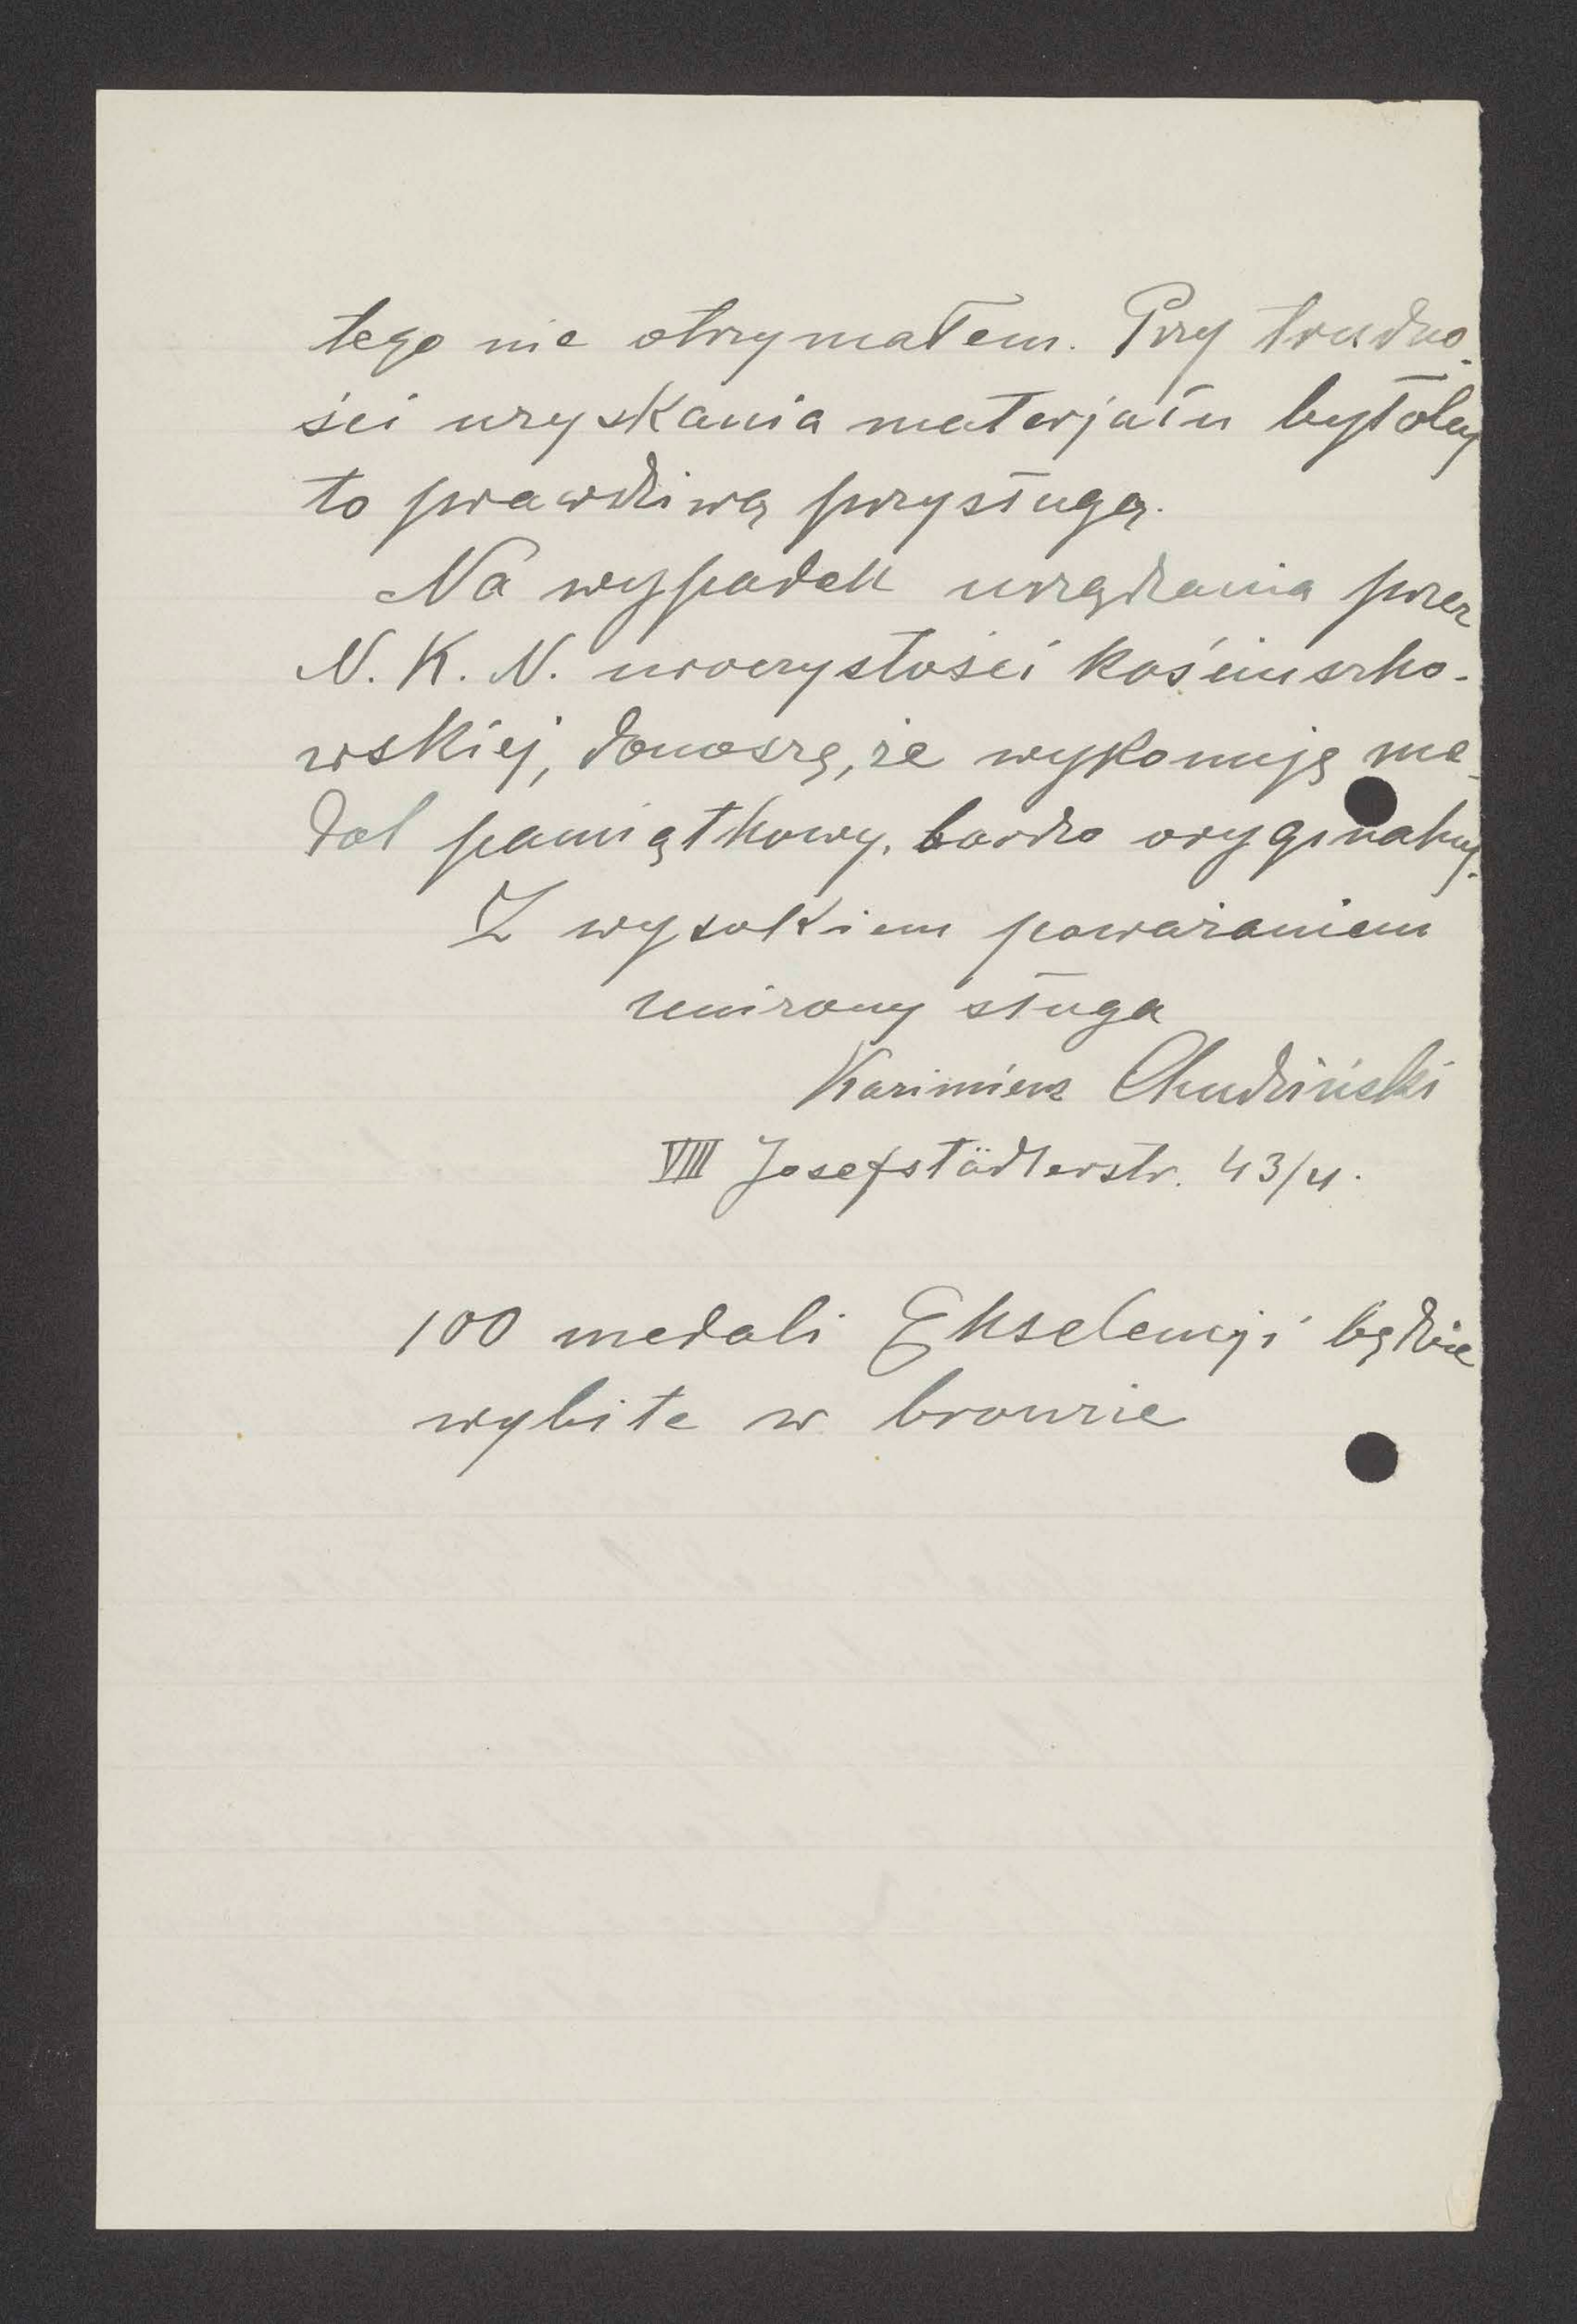 tego nie otrzymałem. Przy trudno-
ści uzyskania materjału byłoby
to prawdziwą przysługą.
Na wypadek urządzania przez
N. K. N. uroczystości kościuszko-
wskiej, donoszę, że wykonuję me-
dal pamiątkowy, bardzo oryginalny.
Z wysokiem poważaniem
uniżony sługa
Kazimierz Chudziński
VIII Josefstädterstr. 43/4.
100 medali Ekselencji będzie
wybite w bronzie